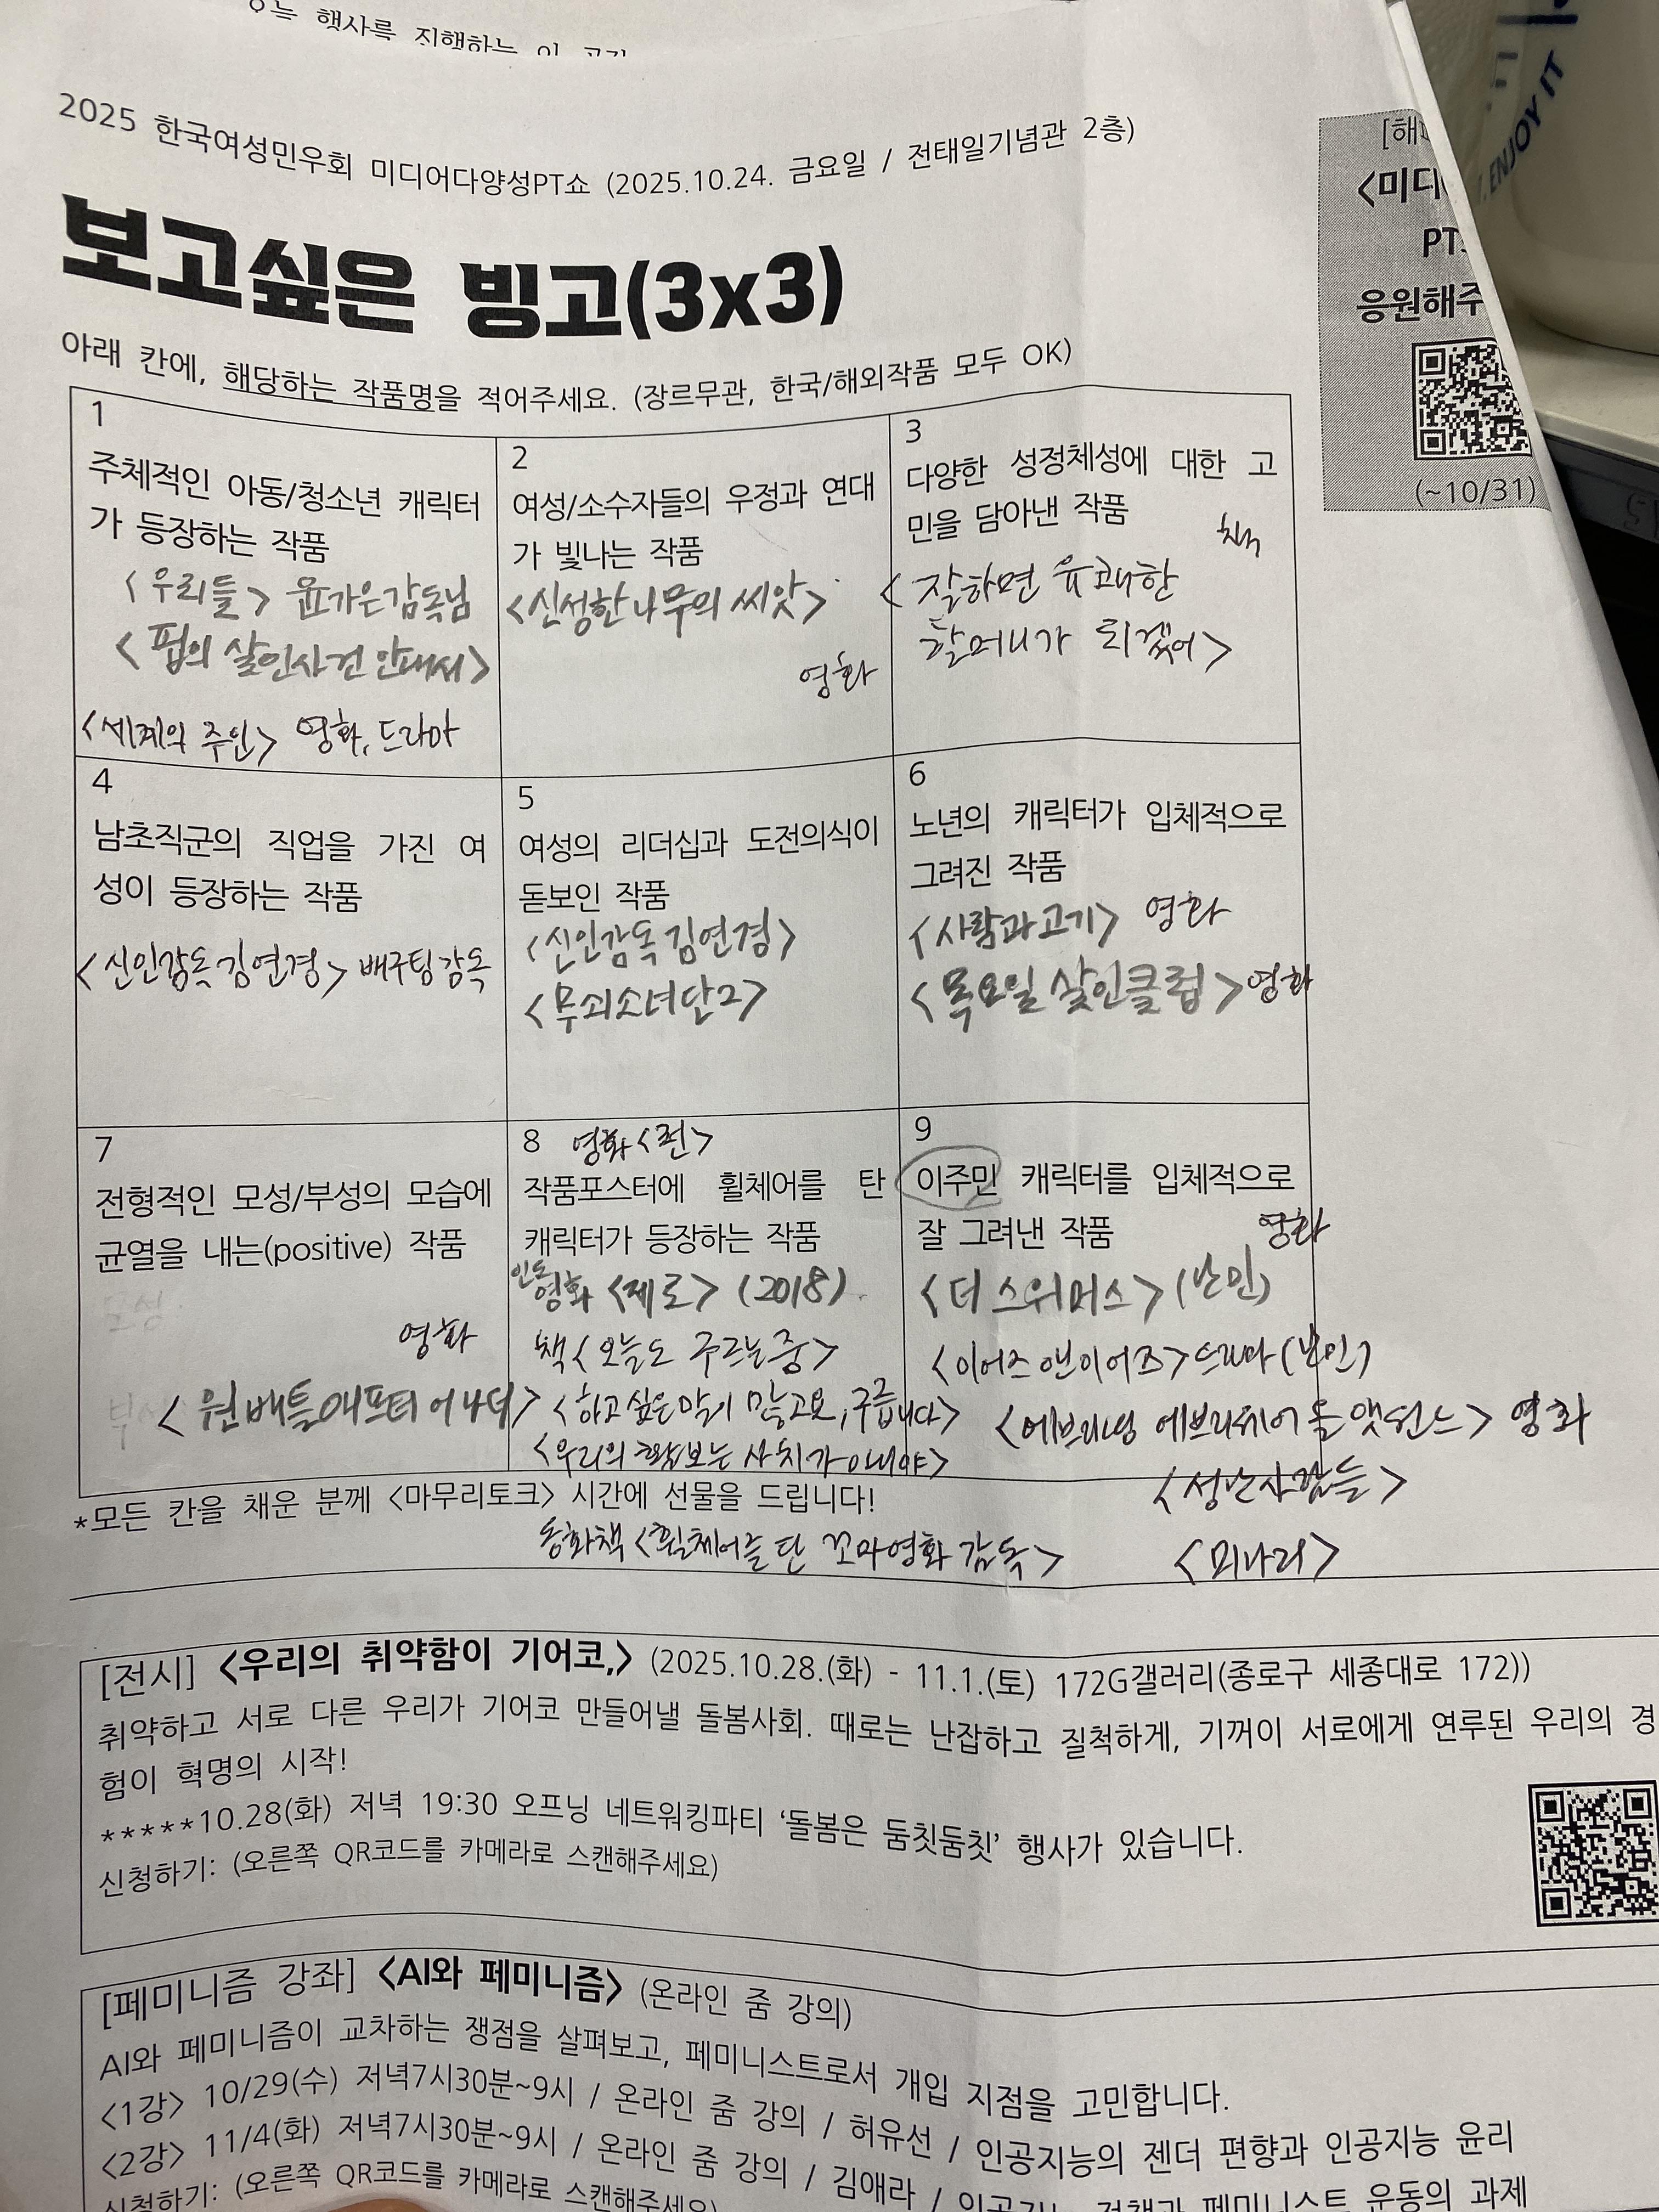 오늘 행사를 진행하는 이 공간
2025 한국여성민우회 미디어다양성PT쇼 (2025.10.24. 금요일 / 전태일기념관 2층)
보고싶은 빙고(3x3)
아래 칸에, 해당하는 작품명을 적어주세요. (장르무관, 한국/해외작품 모두 OK)
1
주체적인 아동/청소년 캐릭터
가 등장하는 작품
<우리들> 윤가은감독님
<핍의 살인사건 안내서>
<세계의 주인> 영화, 드라마
2
여성/소수자들의 우정과 연대
가 빛나는 작품
<신성한 나무의 씨앗>
영화
3
다양한 성정체성에 대한 고
민을 담아낸 작품
책
<잘하면 유쾌한
할머니가 되겠어>
4
남초직군의 직업을 가진 여
성이 등장하는 작품
<신인감독 김연경> 배구팀 감독
5
여성의 리더십과 도전의식이
돋보인 작품
<신인감독 김연경>
<무쇠소녀단2>
6
노년의 캐릭터가 입체적으로
그려진 작품
<사람과 고기> 영화
<목요일 살인클럽> 영화
7
전형적인 모성/부성의 모습에
균열을 내는(positive) 작품
모성
영화
부성
<원 배틀 애프터 어나더>
8 영화 <런>
작품포스터에 휠체어를 탄
캐릭터가 등장하는 작품
인도
영화 <제로> (2018)
책 <오늘도 구르는 중>
<하고 싶은 말이 많고요, 구릅니다>
<우리의 활보는 사치가 아니야>
동화책 <휠체어를 탄 꼬마 영화 감독>
9
이주민 캐릭터를 입체적으로
잘 그려낸 작품
영화
<더 스위머스> (난민)
<이어즈 앤 이어즈> 드라마 (난민)
<에브리씽 에브리웨어 올 앳 원스> 영화
<성난 사람들>
<미나리>
*모든 칸을 채운 분께 <마무리토크> 시간에 선물을 드립니다!
<미디
PT
응원해주
(~10/31)
ENJOY IT
[전시] <우리의 취약함이 기어코,> (2025.10.28.(화) - 11.1.(토) 172G갤러리(종로구 세종대로 172))
취약하고 서로 다른 우리가 기어코 만들어낼 돌봄사회. 때로는 난잡하고 질척하게, 기꺼이 서로에게 연루된 우리의 경
험이 혁명의 시작!
*****10.28(화) 저녁 19:30 오프닝 네트워킹파티 '돌봄은 둠칫둠칫' 행사가 있습니다.
신청하기: (오른쪽 QR코드를 카메라로 스캔해주세요)
[페미니즘 강좌] <AI와 페미니즘> (온라인 줌 강의)
AI와 페미니즘이 교차하는 쟁점을 살펴보고, 페미니스트로서 개입 지점을 고민합니다.
<1강> 10/29(수) 저녁7시30분~9시 / 온라인 줌 강의 / 허유선 / 인공지능의 젠더 편향과 인공지능 윤리
<2강> 11/4(화) 저녁7시30분~9시 / 온라인 줌 강의 / 김애라 / 인공지능 정책과 페미니스트 운동의 과제
신청하기: (오른쪽 QR코드를 카메라로 스캔해주세요)